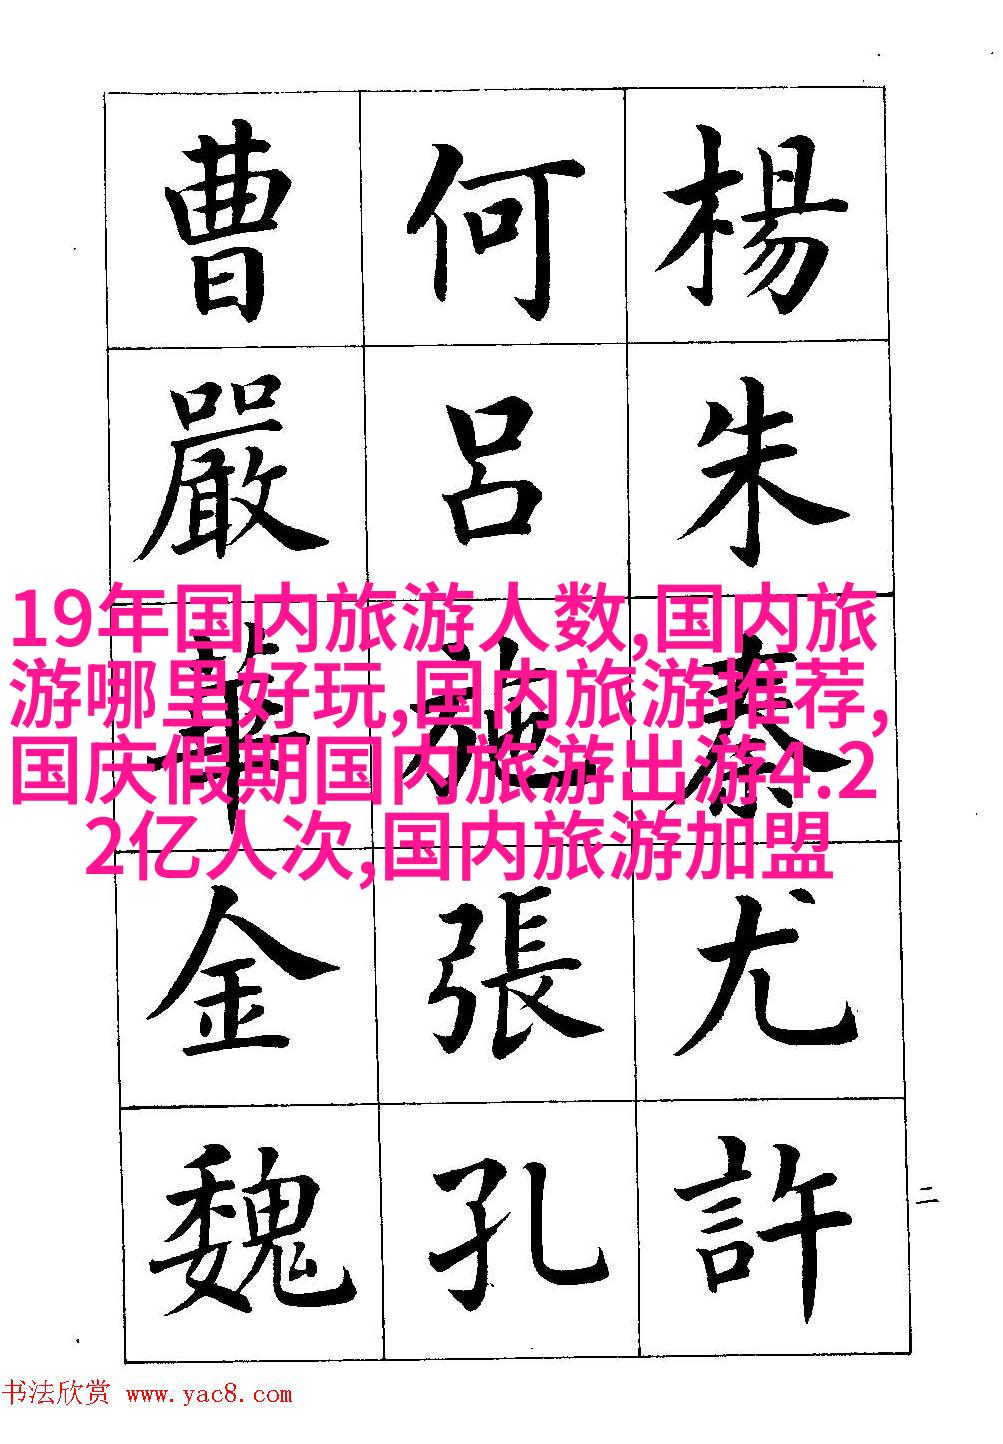 楊
朱
秦
尤
許
何
吕
施
張
孔
曹
嚴
華
金
魏
二
19年国内旅游人数,国内旅
游哪里好玩,国内旅游推荐,
国庆假期国内旅游出游4.2
2亿人次,国内旅游加盟
书法欣赏 www.yac8.com